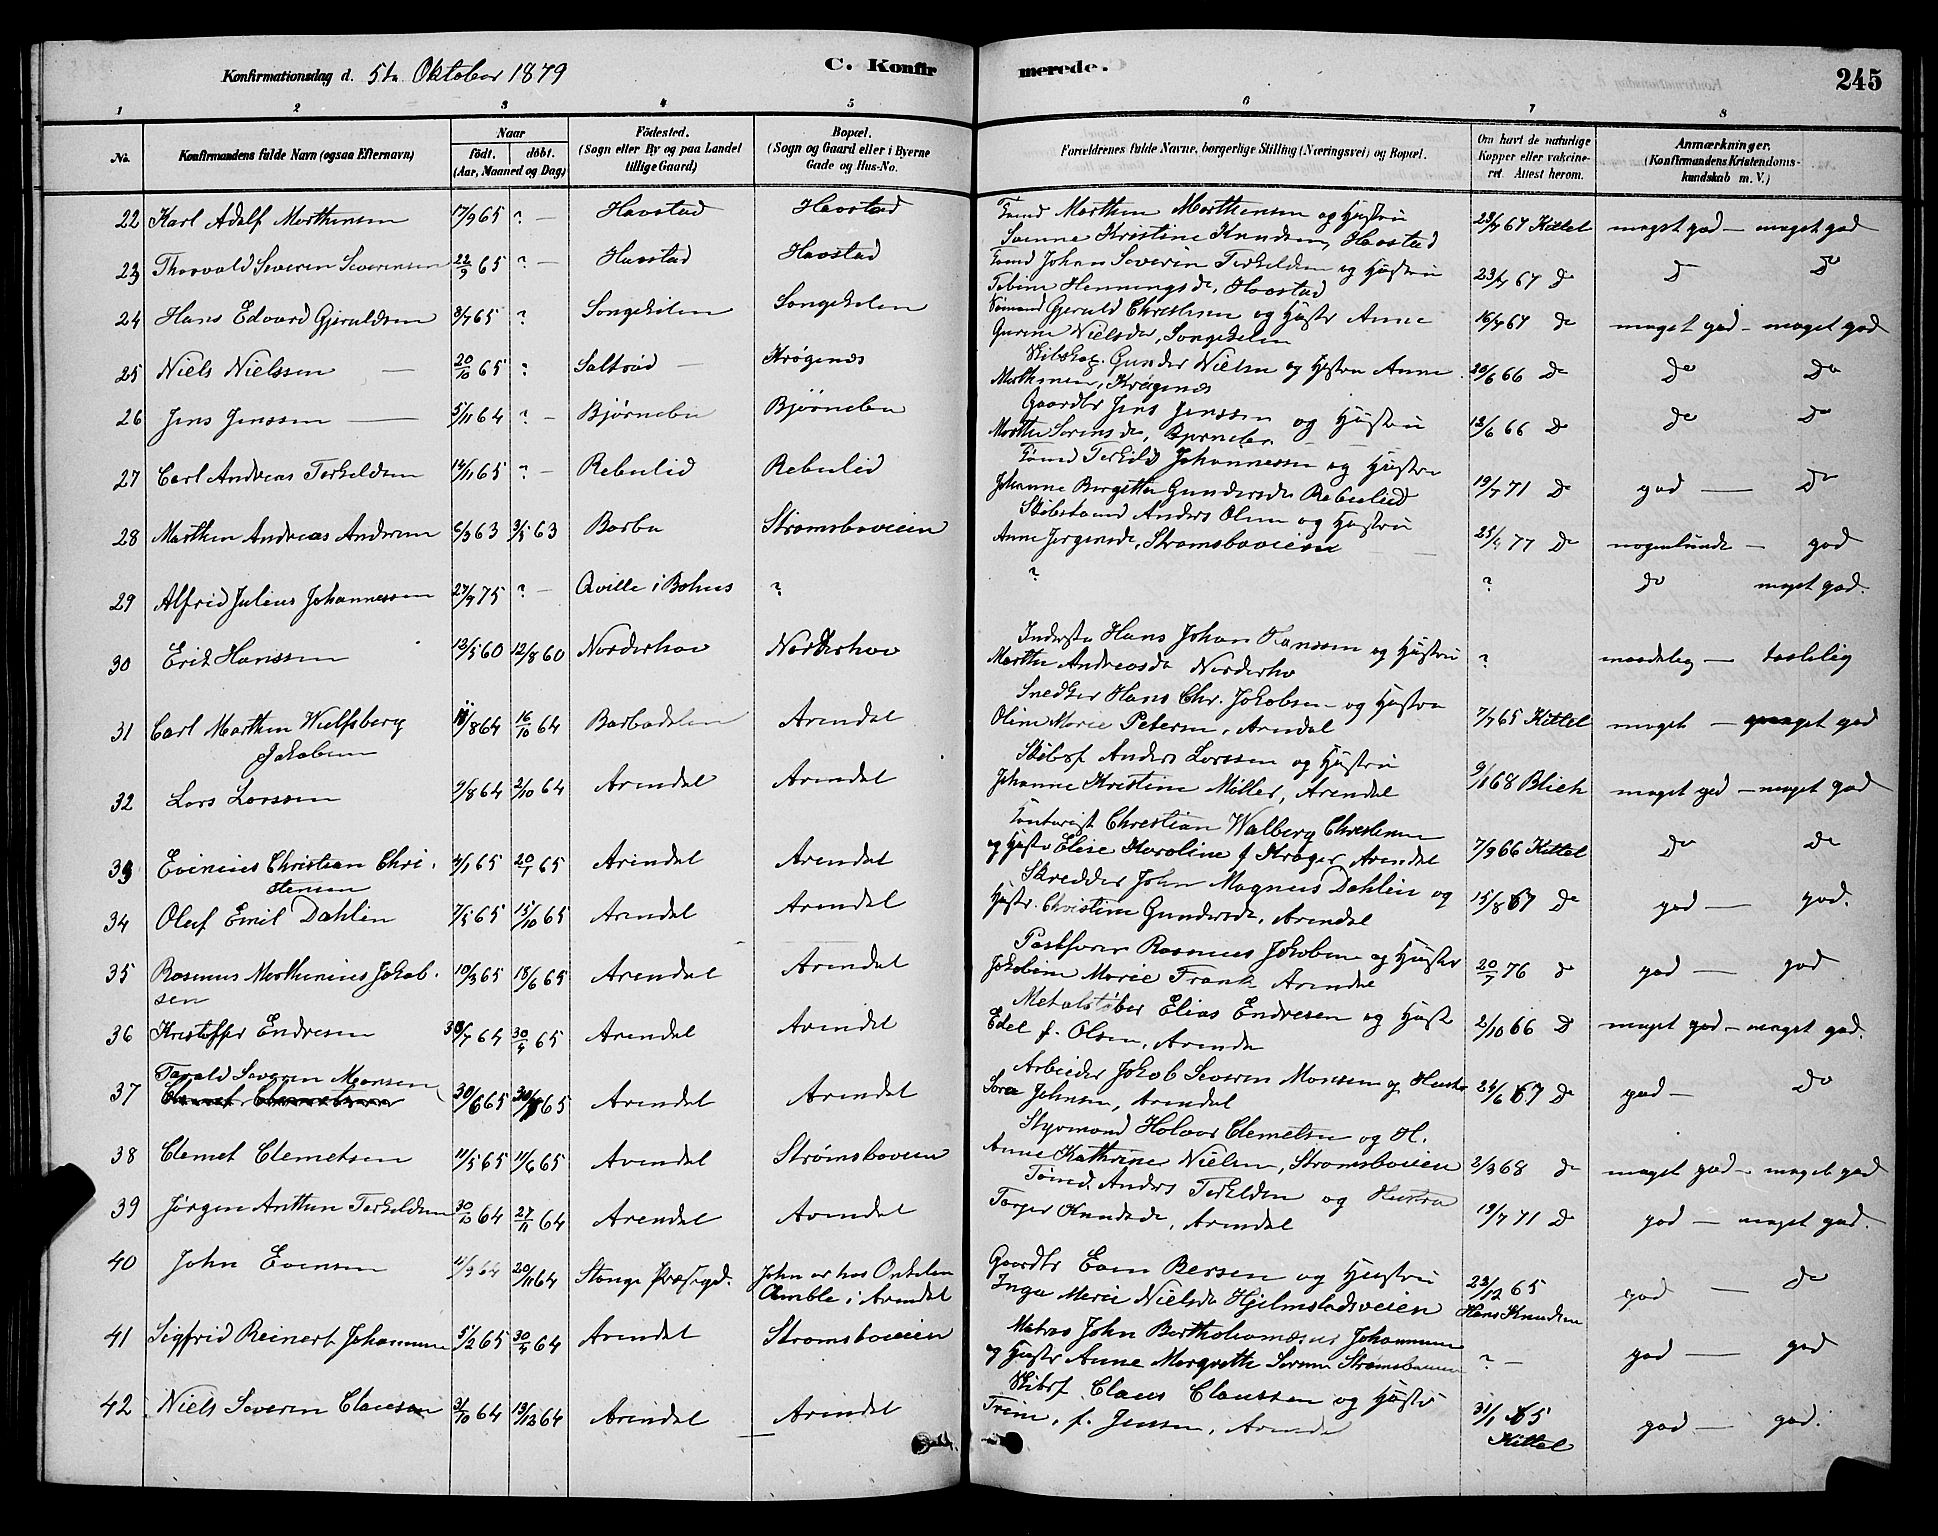 Konfirmationsdag d. 5te Oktober 1879
C. Konfirmerede.
245
1 2 3 4 5 6 7 8
No.
Konfirmandens fulde Navn (ogsaa Efternavn)
Naar
födt. döbt.
(Aar, Maaned og Dag)
Födested.
(Sogn eller By og paa Landet
tillige Gaard)
Bopæl.
(Sogn og Gaard eller i Byerne
Gade og Hus-No.
Forældrenes fulde Navne, borgerlige Stilling (Næringsvei) og Bopæl.
Om havt de naturlige
Kopper eller vakcine-
ret. Attest herom.
Anmærkninger.
(Konfirmandens Kristendoms-
kundskab m. V.)
22 Karl Adolf Morthensen 17/9 65 ? — Havstad Havstad Morthen Morthensen og Hustru
Kristine Knudsen, Havstad 23/4 67 Kittel meget god — meget god
23 Thorvald Severen Severensen 22/9 65 ? — Havstad Havstad Johan Severin Terkeldsen og Hustru
Tobine Henningsdr, Havstad 23/4 67 Do Do Do
24 Hans Edvard Gjeruldsen 3/4 65 ? Songekilen Songekilen Sömand Gjeruld Christensen og Hustr Anne
Gurine Nielsdr, Songekilen 16/4 67 Do meget god — meget god
25 Niels Nielssen — 20/10 65 ? Saltröd — Krögenæs Skibskap. Gunder Nielsen og Hustru Anne
Krögenæs 20/6 66 Do Do Do
26 Jens Jenssen — 5/11 64 ? — Bjørnebu Bjørnebu Gaardbr Jens Jenssen og Hustru
Marthe Sorensdr, Bjørnebu 12/6 66 Do Do Do
27 Carl Andreas Terkeldsen 12/11 65 ? — Rebulid Rebulid Terkild Johannessen og Hustru
Johanne Birgitte Gundersdr Rebulid 19/7 71 Do god — Do
28 Morthen Andreas Andersen 6/3 63 3/5 63 Barbu Strømsboveien Anders Olsen og Hustru
Anne Jørgensdr, Strømsboveien 25/4 77 Do nogenlunde — god
29 Alfrid Julius Johannessen 27/4 75 ? — Qville i Bohus ? ? ? Do meget god.
30 Erik Hanssen 12/5 60 12/8 60 Norderhov Norderhov Inderste Hans Johan Hanssen og Hustru
Marthe Andreasdr Norderho ? maadelig — taalelig
31 Carl Morthen Wulfsberg
Jakobsen 11/8 64 16/10 64 Barbodalen Arendal Snedker Hans Chr. Jakobsen og Hustru
Oline Marie Petersen, Arendal 7/7 65 Kittel meget — meget god
32 Lars Larssen 9/8 64 2/10 64 Arendal Arendal Skibsf Anders Larssen og Hustru
Johanne Kristine Möller, Arendal 9/1 68 Blich meget god — meget god
33 Evinius Christian Chri-
stensen 4/1 65 20/1 65 Arendal Arendal Kontorist Christian Walberg Christensen
og Hustr Elise Karoline f Krøger Arendal 7/9 66 Kittel Do Do
34 Oluf Emil Dahlin 7/5 65 15/10 65 Arendal Arendal Skredder John Magnus Dahlin og
Hustr. Christine Gundersdr, Arendal 15/8 67 Do god — god.
35 Rasmus Morthinius Jakob-
sen 10/3 65 18/6 65 Arendal Arendal Postfører Rasmus Jakobsen og Hustru
Jakobine Marie Frank Arendal 20/7 76 Do god — god
36 Kristoffer Endresen 30/7 64 30/4 65 Arendal Arendal Metalstöber Elias Endresen og Hust
Edel f. Olsen, Arendal 2/10 66 Do meget god — meget god.
37 Tarald Severin Monsen 30/6 65 65 Arendal Arendal Arbeider Jakob Severin Monsen og Hustr
Sara Johnsen, Arendal 24/6 67 Do god — Do
38 Clemet Clemetsen 11/5 65 11/6 65 Arendal Strømsboveien Styrmand Halvor Clemetsen og H.
Anne Kathrine Nielsen, Strømsboveien 2/3 68 Do meget god — meget god
39 Jørgen Anthon Terkeldsen 30/10 64 27/11 64 Arendal Arendal Tömd. Anders Terkeldsen og Hustru
Torjer Knudsdr, Arendal 19/7 71 Do god — meget god.
40 John Evensen 11/9 64 20/11 64 Stange Præstegd. John er hos Onkelen
Omble i Arendal Gaardbr Even Bersen og Hustru
Inga Marie Nielsdr Hjelmstadsveien 23/12 65
Hans Knudsen god — Do
41 Sigfrid Reinert Johannesen 5/2 65 30/4 64 Arendal Strømsboveien Matros John Bartholomæus Johannesen
og Hustr Anne Margrethe Strømsboveien ? — god — god
42 Niels Severin Clausen 31/10 64 13/12 64 Arendal Arendal Skibsf Claus Claussen og Hustr
Trine, f. Jenssen, Arendal 31/1 65
Kittel god — god.